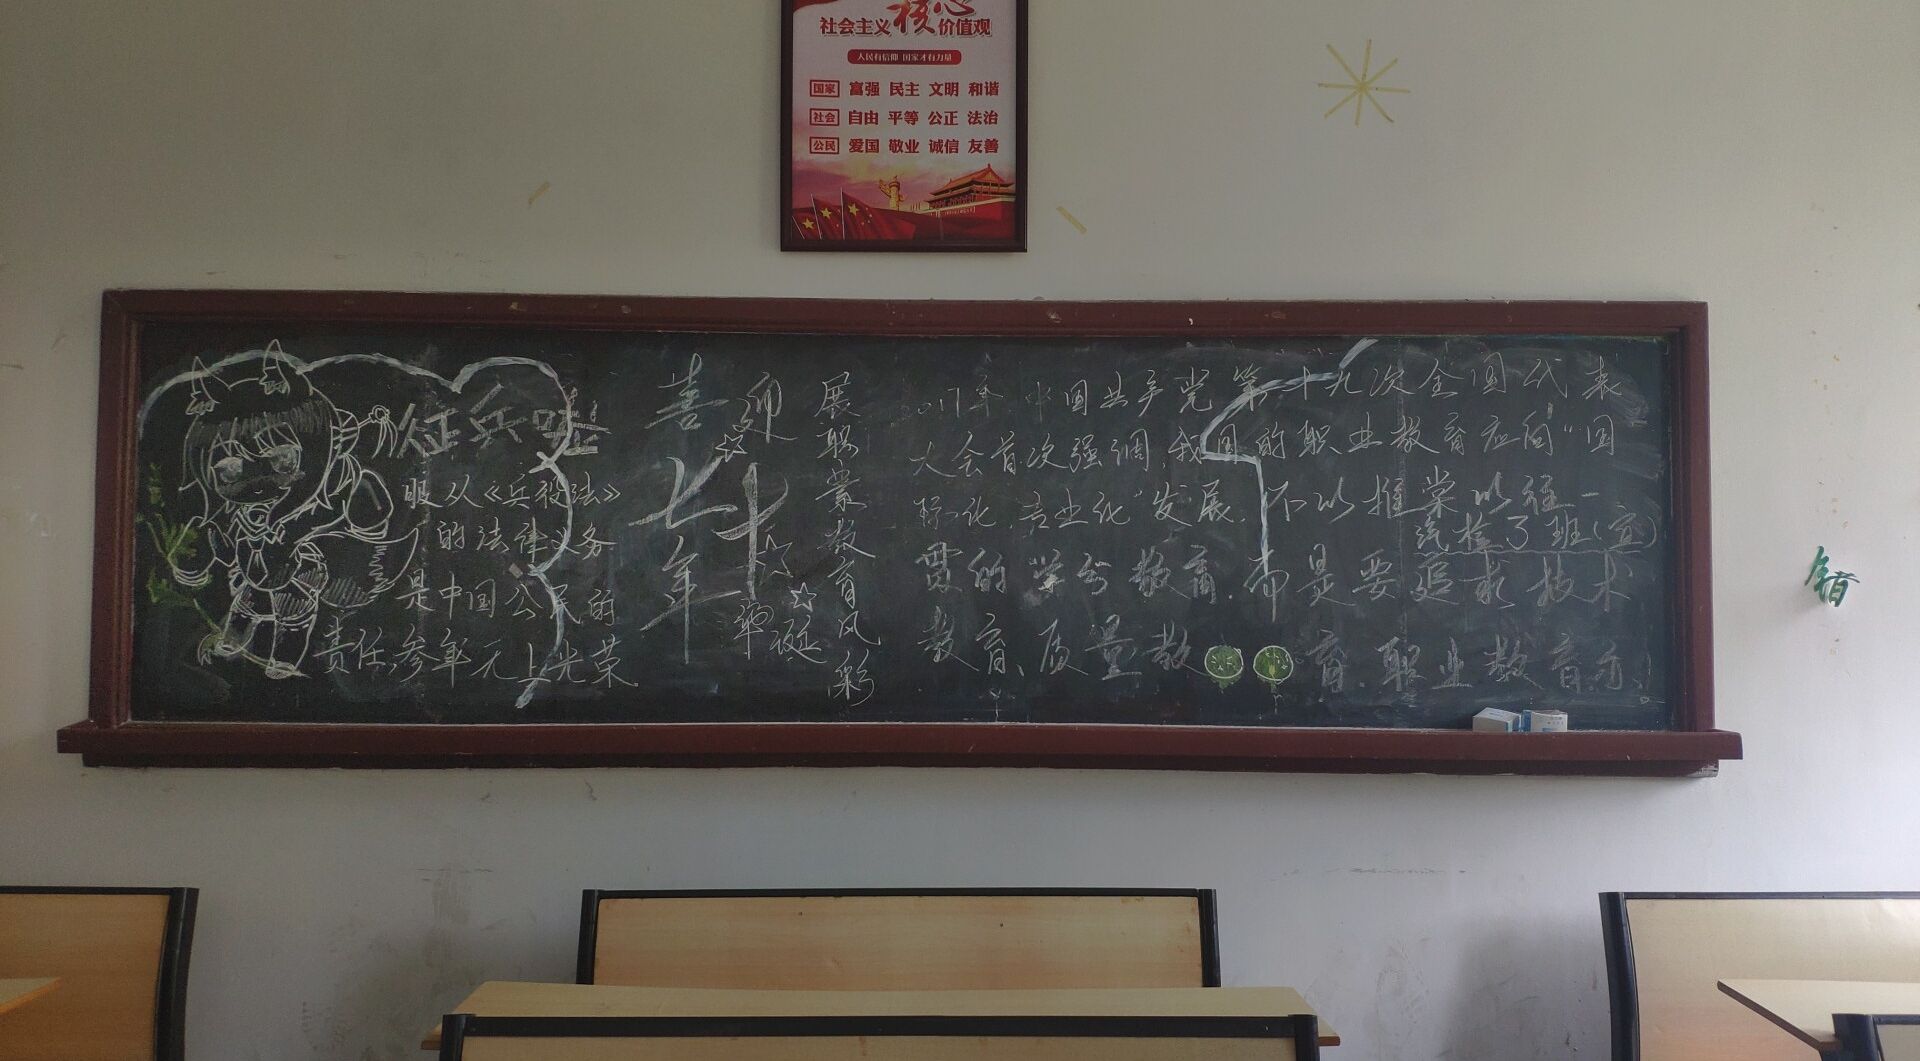 社会主义核心价值观
人民有信仰 国家才有力量
国家 富强 民主 文明 和谐
社会 自由 平等 公正 法治
公民 爱国 敬业 诚信 友善
征兵啦
服从《兵役法》
的法律义务
是中国公民的
责任,参军无上光荣
喜迎
七十
年
华诞
展职业教育风彩
2017年 中国共产党第十九次全国代表
大会首次强调,我国的职业教育应向“国
际化,专业化”发展,不以推崇以往一
汽检3班(宣)
贯的学分教育,而是要追求技术
教育、质量教育.职业教育亦
错